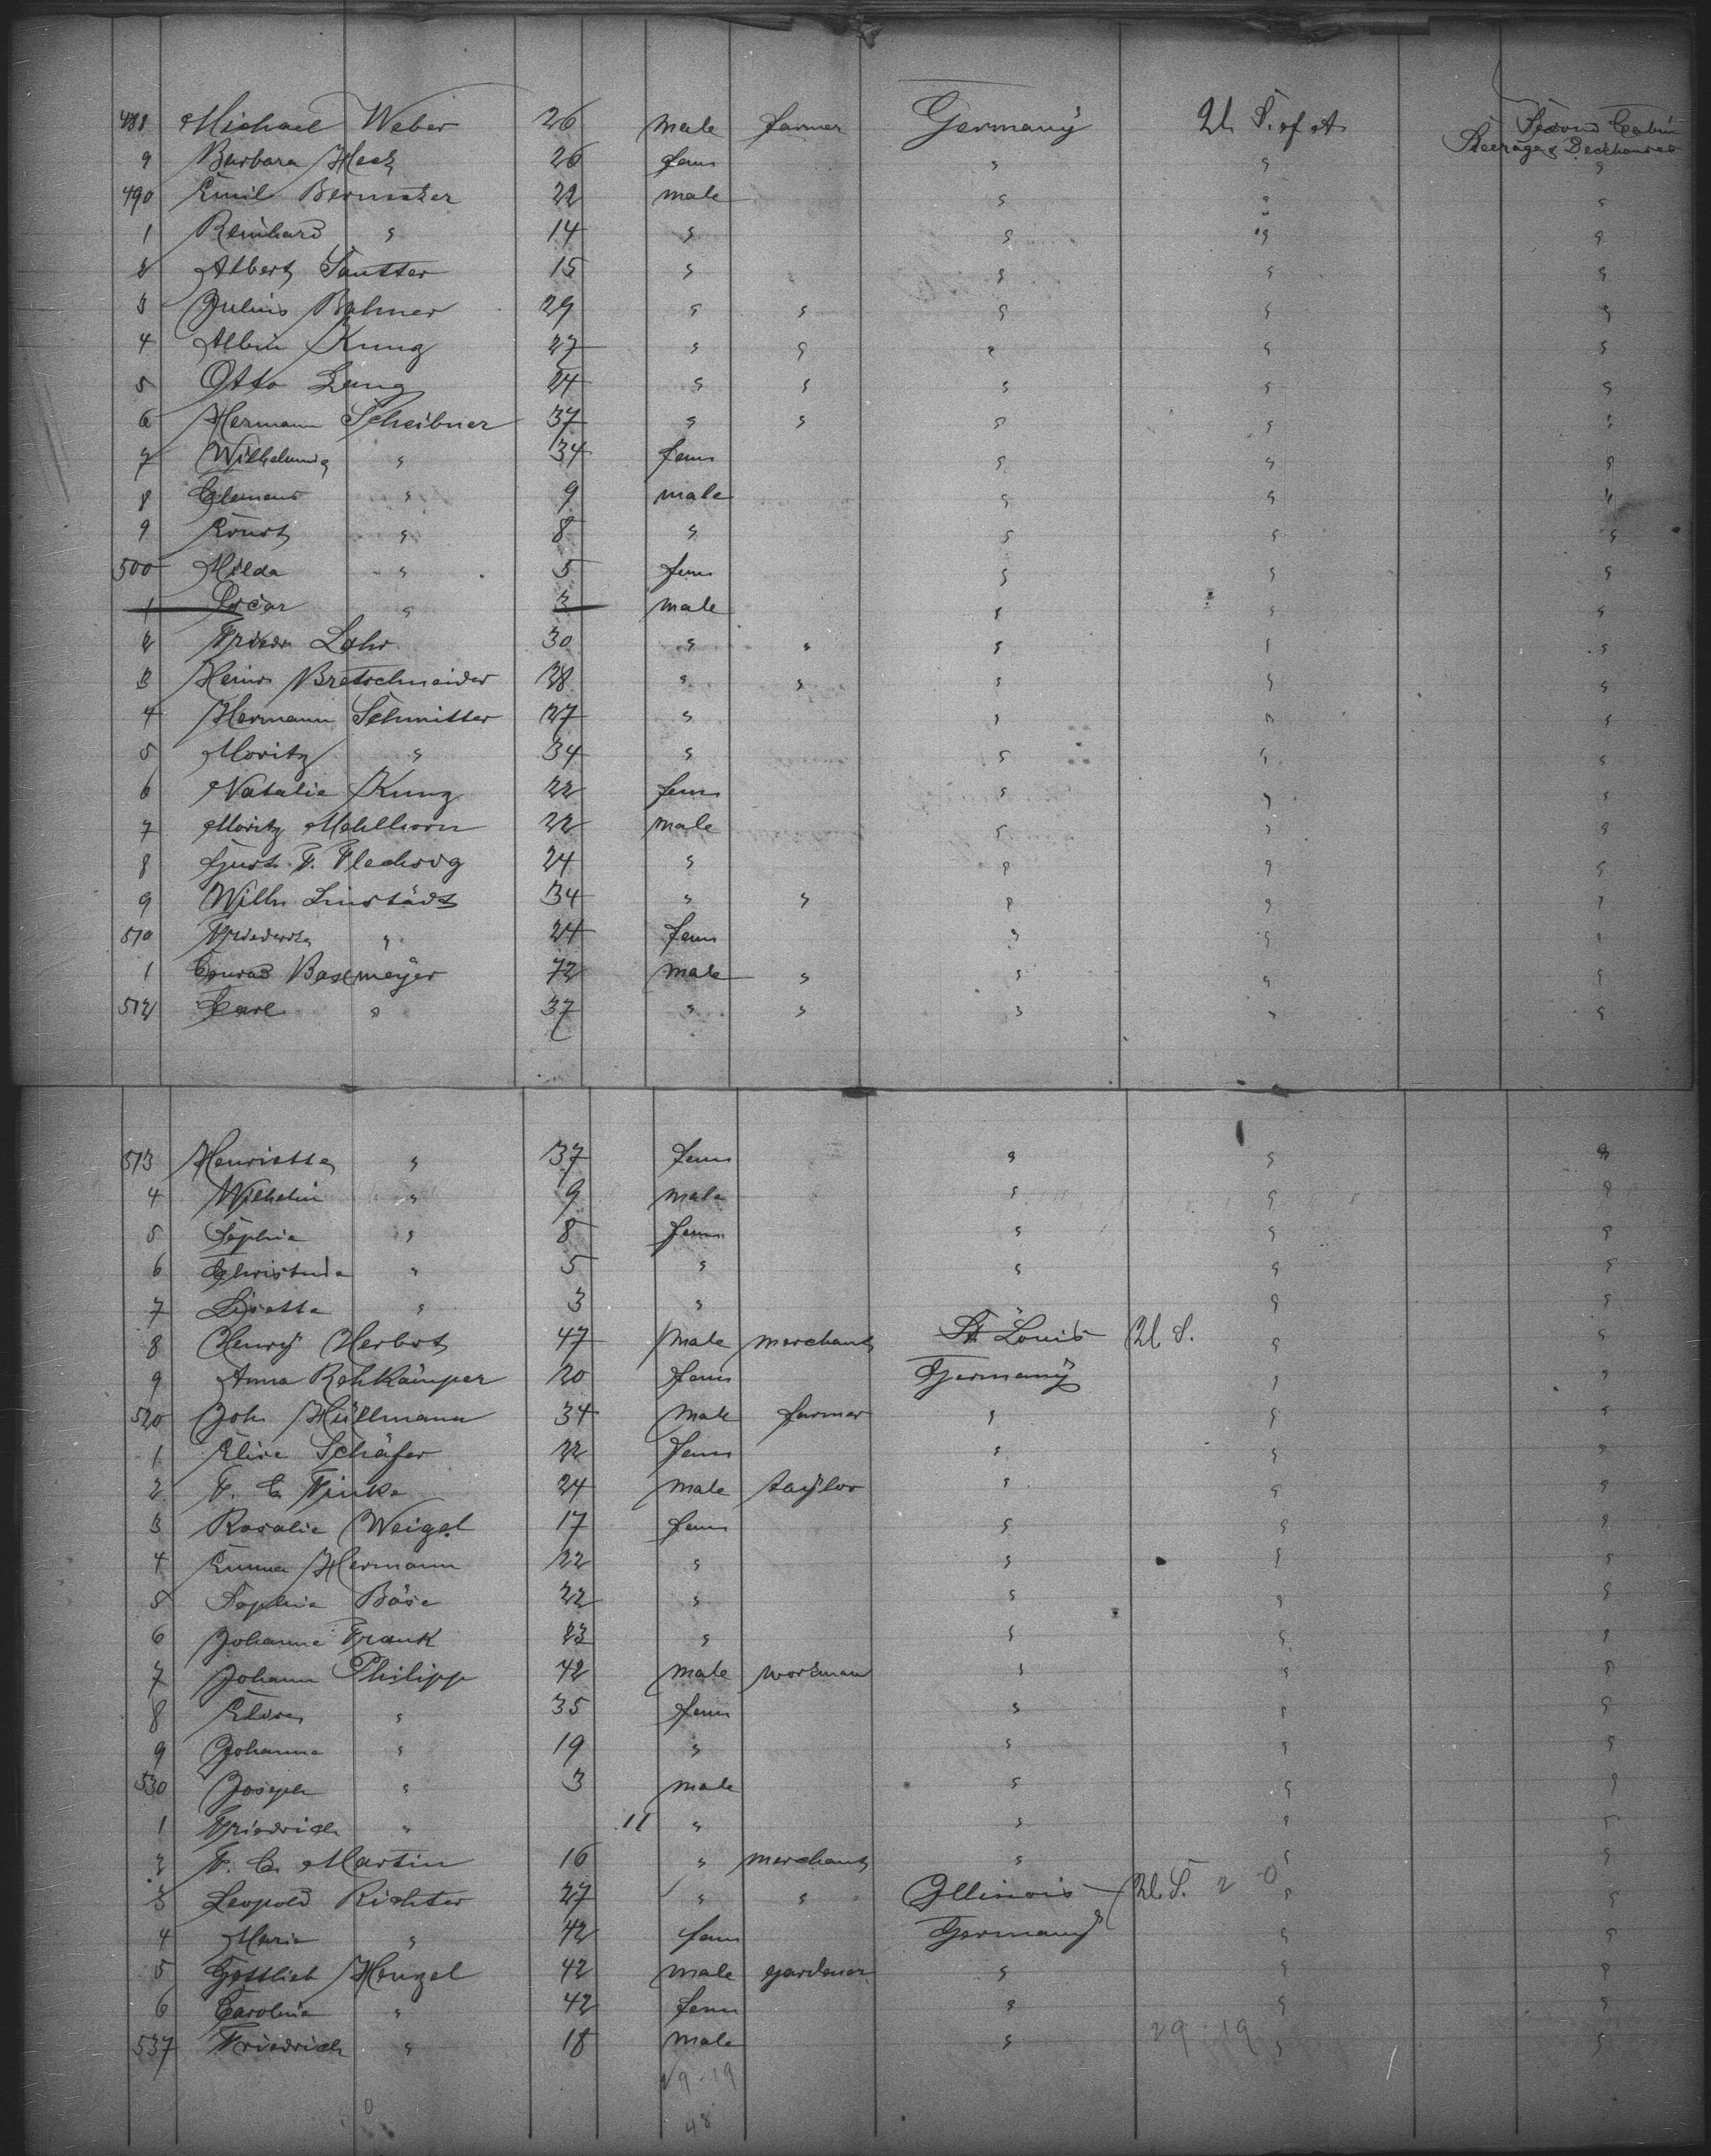 488 Michael Weber 26 male farmer Germany U. S. of A Second Cabin
Steerage & Deckhouse
9 Barbara Heck 26 fem " " "
490 Emil 22 male " " "
1 Reinhard " 14 " " " "
2 Albert Sautter 15 " " " "
3 Julius Bahner 29 " " " " "
4 Albin Kunz 27 " " " " "
5 Otto Lang 24 " " " " "
6 Hermann Scheibner 37 " " " " "
7 " 34 fem " " "
8 Clemens " 9 male " " "
9 Ernst " 8 " " " "
500 Hilda " 5 fem " " "
1 Oscar " 3 male " " "
2 Friedr Lohr 30 " " " " "
3 Heinr Bretschneider 28 " " " " "
4 Hermann 27 " " " "
5 Moritz " 34 " " " "
6 Natalie Kunz 22 fem " " "
7 Moritz Mehlhorn 22 male " " "
8 Gust. F. 24 " " " "
9 Wilh Linstädt 34 " " " " "
510 " 24 fem " " "
1 Conrad 72 male " " " "
512 Carl " 37 " " " " "
513 Henriette " 37 fem " " "
4 Wilhelm " 9 male " " "
5 Sophie " 8 fem " " "
6 Christine " 5 " " " "
7 Lisette " 3 " " " "
8 Henry Herbst 47 male merchant St. Louis U. S. " "
9 Anna Rehkämper 20 fem Germany " "
520 Joh. Hüllmann 34 male farmer " " "
1 Elise Schäfer 22 fem " " "
2 F. C. Finke 24 male taylor " " "
3 Rosalie Weigel 17 fem " " "
4 Emma Hermann 22 " " " "
5 Sophie Böse 22 " " " "
6 Johanne Frank 23 " " " "
7 Johann Philipp 42 male workman " " "
8 " 35 fem " " "
9 Johanna " 19 " " " "
530 Joseph " 3 male " " "
1 Friedrich " 11 " " " "
2 F. C. Martin 16 " merchant " " "
3 Leopold Richter 27 " " Illinois U. S. 2 0 " "
4 Marie " 42 fem Germany " "
5 Gottlieb Henzel 42 male gardener " " "
6 Caroline " 42 fem " " "
537 Friedrich " 18 male " 29-19 " "
29-19
0
48